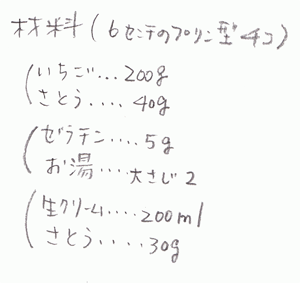 材料(6センチのプリン型4コ)
いちご...200g
さとう....40g
ゼラチン....5g
お湯....大さじ2
生クリーム....200ml
さとう.....30g